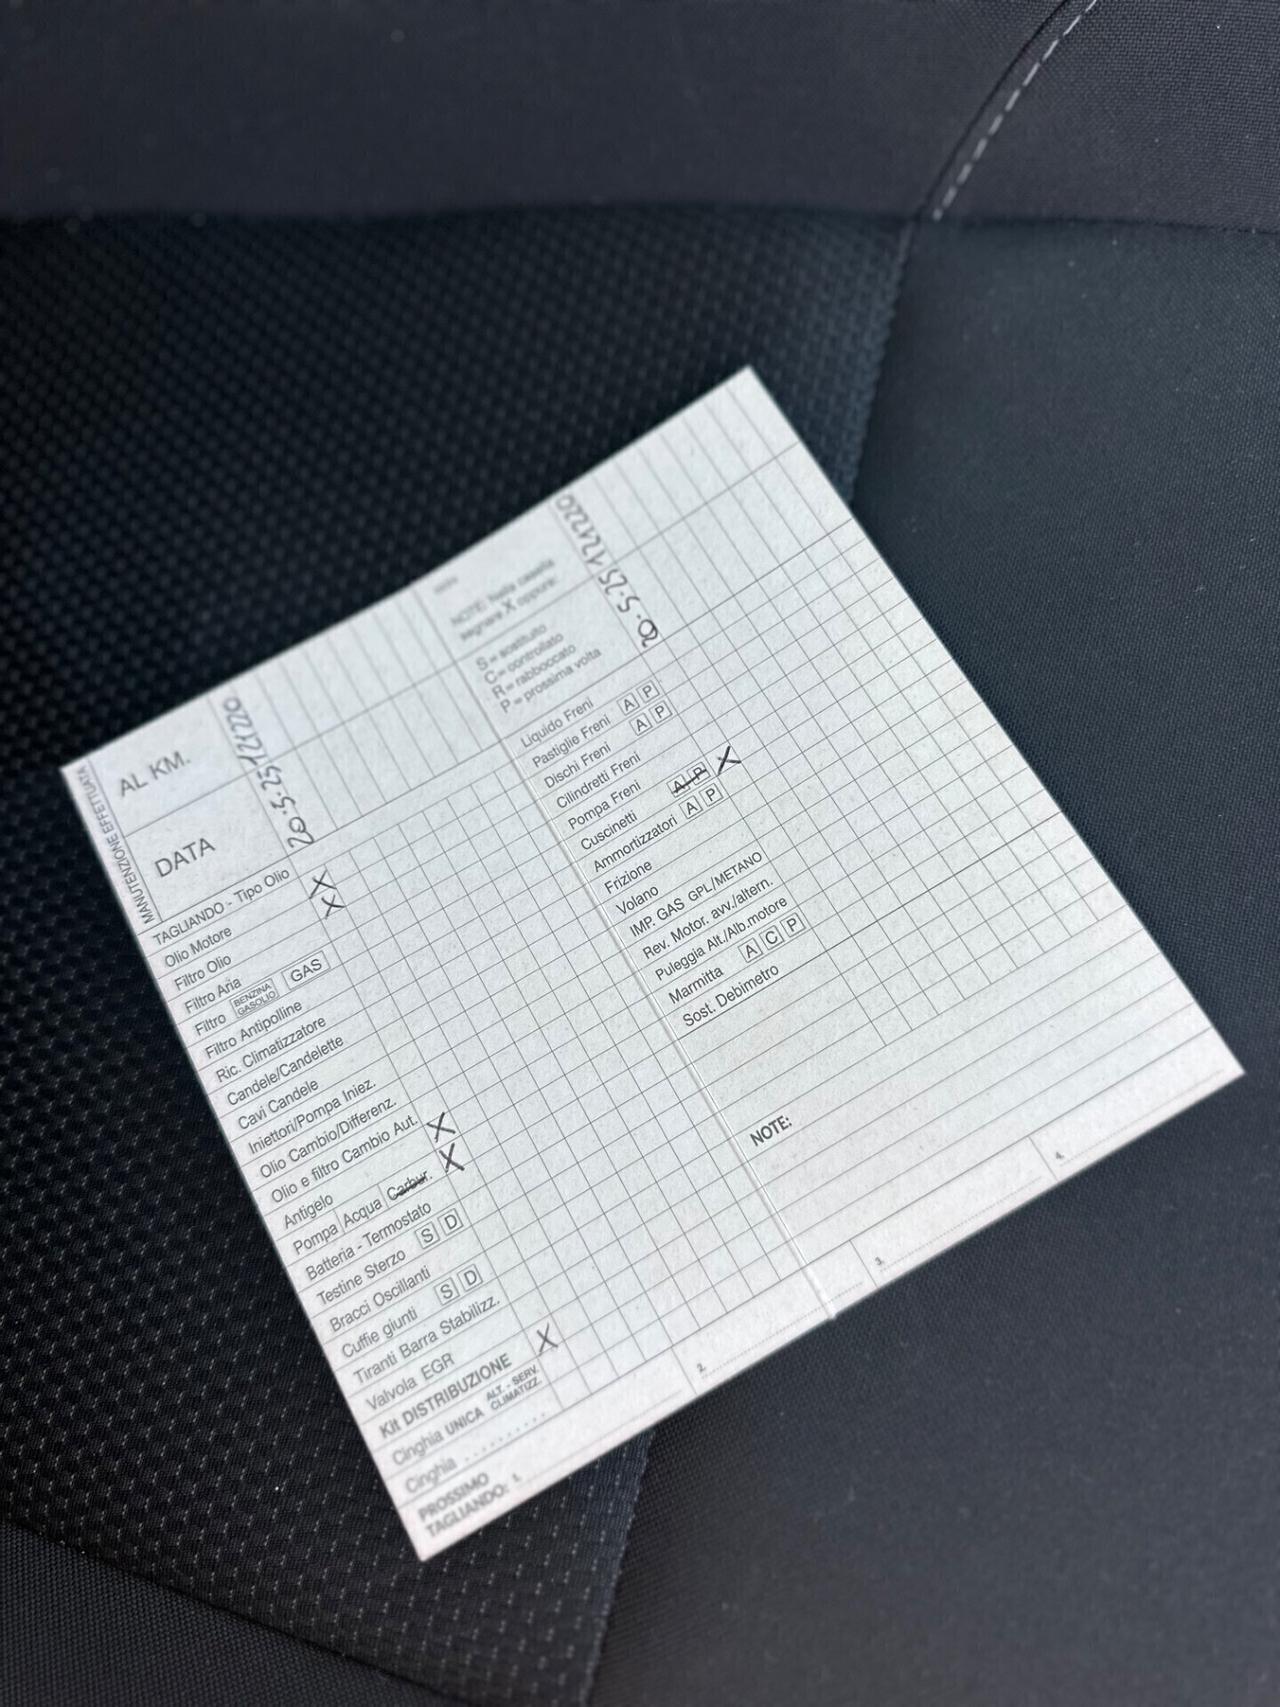 MANUTENZIONE EFFETTUATA
AL KM. 121220
DATA 20.5.25
TAGLIANDO - Tipo Olio
Olio Motore X
Filtro Olio X
Filtro Aria
Filtro BENZINA GASOLIO GAS
Filtro Antipolline
Ric. Climatizzatore
Candele/Candelette
Cavi Candele
Iniettori/Pompa Iniez.
Olio Cambio/Differenz.
Olio e filtro Cambio Aut.
Antigelo X
Pompa Acqua Carbur. X
Batteria - Termostato
Testine Sterzo S D
Bracci Oscillanti
Cuffie giunti S D
Tiranti Barra Stabilizz.
Valvola EGR
Kit DISTRIBUZIONE
Cinghia UNICA ALT. - SERV. CLIMATIZZ. X
Cinghia ..........
PROSSIMO
TAGLIANDO: 1.
2.
NOTE: Nella casella
segnare X oppure:
S = sostituito
C = controllato
R = rabboccato
P = prossima volta
121220
20.5.25
Liquido Freni
Pastiglie Freni A P
Dischi Freni A P
Cilindretti Freni
Pompa Freni
Cuscinetti A P X
Ammortizzatori A P
Frizione
Volano
IMP. GAS GPL/METANO
Rev. Motor. avv./altern.
Puleggia Alt./Alb.motore
Marmitta A C P
Sost. Debimetro
NOTE:
3.
4.